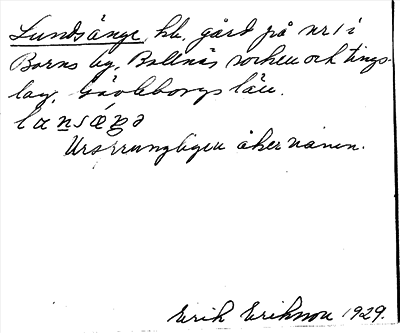 Lundsänge, hb. gård på nr 1 i
Borns by, Bollnäs socken och tings-
lag, Gävleborgs län.
lansǽŋə
Ursprungligen åkernamn.
Erik Erikson 1929.